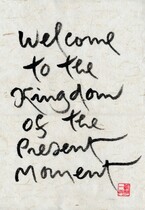 Welcome
to the
Kingdom
of the
Present
Moment